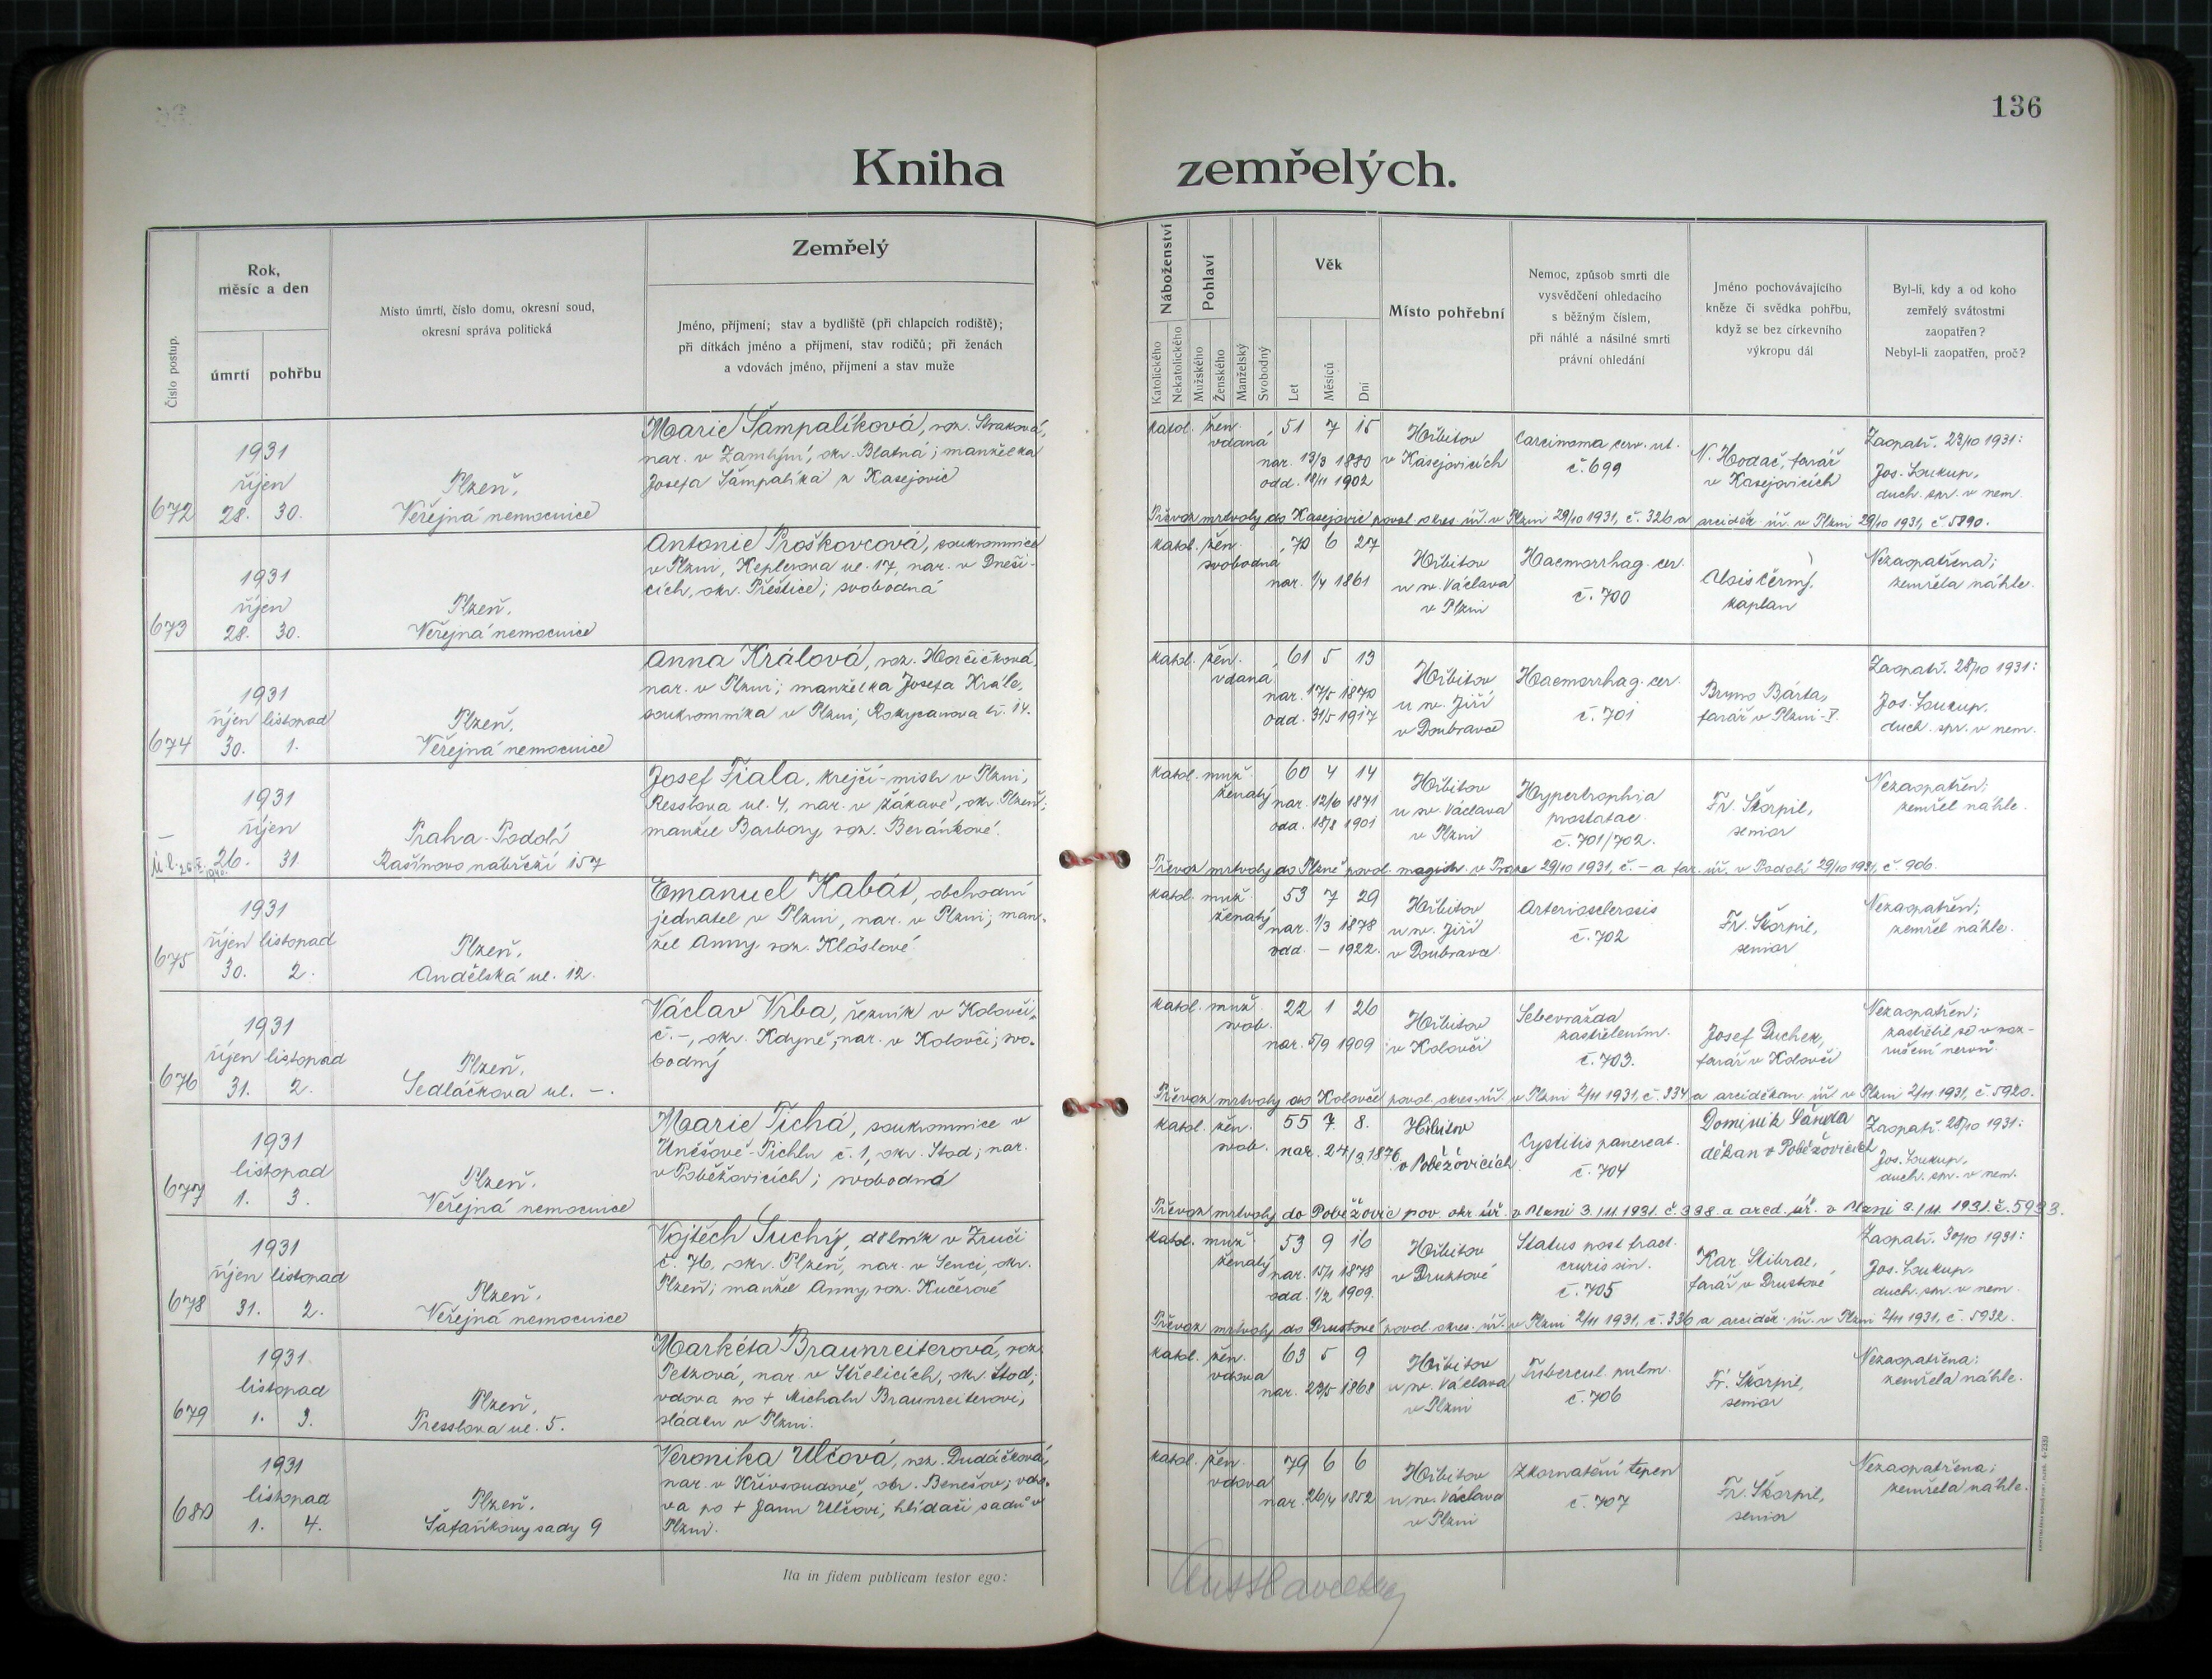 136
Kniha zemřelých.
Číslo postup.
Rok, měsíc a den
úmrtí
pohřbu
Místo úmrtí, číslo domu, okresní soud,
okresní správa politická
Zemřelý
Jméno, příjmení; stav a bydliště (při chlapcích rodiště);
při dítkách jméno a příjmení, stav rodičů; při ženách
a vdovách jméno, příjmení a stav muže
Náboženství
Katolického
Nekatolického
Pohlaví
Mužského
Ženského
Manželský
Svobodný
Věk
Let
Měsíců
Dní
Místo pohřební
Nemoc, způsob smrti dle
vysvědčení ohledacího
s běžným číslem,
při náhlé a násilné smrti
právní ohledání
Jméno pochovávajícího
kněze či svědka pohřbu,
když se bez církevního
výkropu dál
Byl-li, kdy a od koho
zemřelý svátostmi
zaopatřen?
Nebyl-li zaopatřen, proč?
672
1931
říjen
28. 30.
Plzeň,
Veřejná nemocnice
Marie Šampalíková, roz. Straková,
nar. v Zámlýní, okr. Blatná; manželka
Josefa Šampalíka z Kasejovic
katol. žen. 51 7 15
vdaná
nar. 13/3 1880
odd. 18/11 1902
Hřbitov
v Kasejovicích
Carcinoma cerv. ut.
č. 699
N. Hodač, farář
v Kasejovicích
Zaopatř. 23/10 1931:
Jos. Soukup,
duch. spr. v nem.
Převoz mrtvoly do Kasejovic povol. okres. úř. v Plzni 29/10 1931, č. 326 a arciděk. úř. v Plzni 29/10 1931, č. 5890.
673
1931
říjen
28. 30.
Plzeň,
Veřejná nemocnice
Antonie Proškovcová, soukromnice
v Plzni, Keplerova ul. 17, nar. v Dneši-
cích, okr. Přeštice; svobodná
katol. žen. 70 6 27
svobodná
nar. 1/4 1861
Hřbitov
u sv. Václava
v Plzni
Haemorrhag. cer.
č. 700
Alois Černý,
kaplan
Nezaopatřena;
zemřela náhle.
674
1931
říjen listopad
30. 1.
Plzeň,
Veřejná nemocnice
Anna Králová, roz. Horčičková,
nar. v Plzni; manželka Josefa Krále,
soukromníka v Plzni, Rokycanova tř. 14.
katol. žen. 61 5 13
vdaná
nar. 17/5 1870
odd. 31/5 1917
Hřbitov
u sv. Jiří
v Doubravce
Haemorrhag. cer.
č. 701
Bruno Bárta,
farář v Plzni-V.
Zaopatř. 28/10 1931:
Jos. Soukup,
duch. spr. v nem.
1931
říjen
26. 31.
Praha-Podolí
Rašínovo nábřeží 157
Josef Fiala, krejčí-mistr v Plzni,
Resslova ul. 4, nar. v Žákavě, okr. Plzeň;
manžel Barbory, roz. Beránkové.
katol. muž. 60 4 14
ženatý
nar. 12/6 1871
odd. 18/8 1901
Hřbitov
u sv. Václava
v Plzni
Hypertrophia
prostatae
č. 701/702.
Fr. Škorpil,
senior
Nezaopatřen;
zemřel náhle.
Převoz mrtvoly do Plzně povol. magistr. v Praze 29/10 1931, č. – a far. úř. v Podolí 29/10 1931, č. 906.
675
1931
říjen listopad
30. 2.
Plzeň,
Andělská ul. 12.
Emanuel Kabát, obchodní
jednatel v Plzni, nar. v Plzni; man-
žel Anny roz. Klóslové.
katol. muž. 53 7 29
ženatý
nar. 1/3 1878
odd. – 1922.
Hřbitov
u sv. Jiří
v Doubravce
Arteriosclerosis
č. 702
Fr. Škorpil,
senior
Nezaopatřen;
zemřel náhle.
676
1931
říjen listopad
31. 2.
Plzeň,
Sedláčkova ul. –.
Václav Vrba, řezník v Koloveči,
č. –, okr. Kdyně; nar. v Kolovči; svo-
bodný
katol. muž. 22 1 26
svob.
nar. 5/9 1909
Hřbitov
v Kolovči
Sebevražda
zastřelením.
č. 703.
Josef Duchek,
farář v Kolovči
Nezaopatřen;
zastřelil se v roz-
rušení nervů.
Převoz mrtvoly do Kolovče povol. okres. úř. v Plzni 2/11 1931, č. 334 a arciděkan. úř. v Plzni 2/11 1931, č. 5920.
677
1931
listopad
1. 3.
Plzeň,
Veřejná nemocnice
Marie Tichá, soukromnice v
Úněšově-Pichlu č. 1, okr. Stod; nar.
v Poběžovicích; svobodná
katol. žen. 55 7. 8.
svob.
nar. 24/3. 1876
Hřbitov
v Poběžovicích
Cystitis pancreat.
č. 704
Dominik Šanda
děkan v Poběžovicích
Zaopatř. 28/10 1931:
Jos. Soukup,
duch. spr. v nem.
Převoz mrtvoly do Poběžovic pov. okr. úř. v Plzni 3./11. 1931. č. 338. a arcd. úř. v Plzni 3./11. 1931. č. 5933.
678
1931
říjen listopad
31. 2.
Plzeň,
Veřejná nemocnice
Vojtěch Suchý, dělník v Zruči
č. 76, okr. Plzeň, nar. v Senci, okr.
Plzeň; manžel Anny, roz. Kučerové
katol. muž. 53 9 16
ženatý
nar. 15/1 1878
odd. 1/2 1909.
Hřbitov
v Druztové
Status post fract.
cruris sin.
č. 705
Kar. Stibral,
farář v Druztové
Zaopatř. 30/10 1931:
Jos. Soukup,
duch. spr. v nem.
Převoz mrtvoly do Druztové povol. okres. úř. v Plzni 2/11 1931, č. 336 a arciděk. úř. v Plzni 2/11 1931, č. 5932.
679
1931.
listopad
1. 3.
Plzeň,
Presslova ul. 5.
Markéta Braunreiterová, roz.
Petzová, nar. v Střelicích, okr. Stod;
vdova po + Michalu Braunreiterovi,
sládku v Plzni.
katol. žen. 63 5 9
vdova
nar. 23/5 1868
Hřbitov
u sv. Václava
v Plzni
Tubercul. pulm.
č. 706
Fr. Škorpil,
senior
Nezaopatřena;
zemřela náhle.
680
1931
listopad
1. 4.
Plzeň,
Šafaříkovy sady 9
Veronika Ulčová, roz. Dudáčková,
nar. v Křivsoudově, okr. Benešov; vdo-
va po + Janu Ulčovi, hlídači sadů v
Plzni.
katol. žen. 79 6 6
vdova
nar. 26/4 1852
Hřbitov
u sv. Václava
v Plzni
Zkornatění tepen
č. 707
Fr. Škorpil,
senior
Nezaopatřena;
zemřela náhle.
Ita in fidem publicam testor ego: